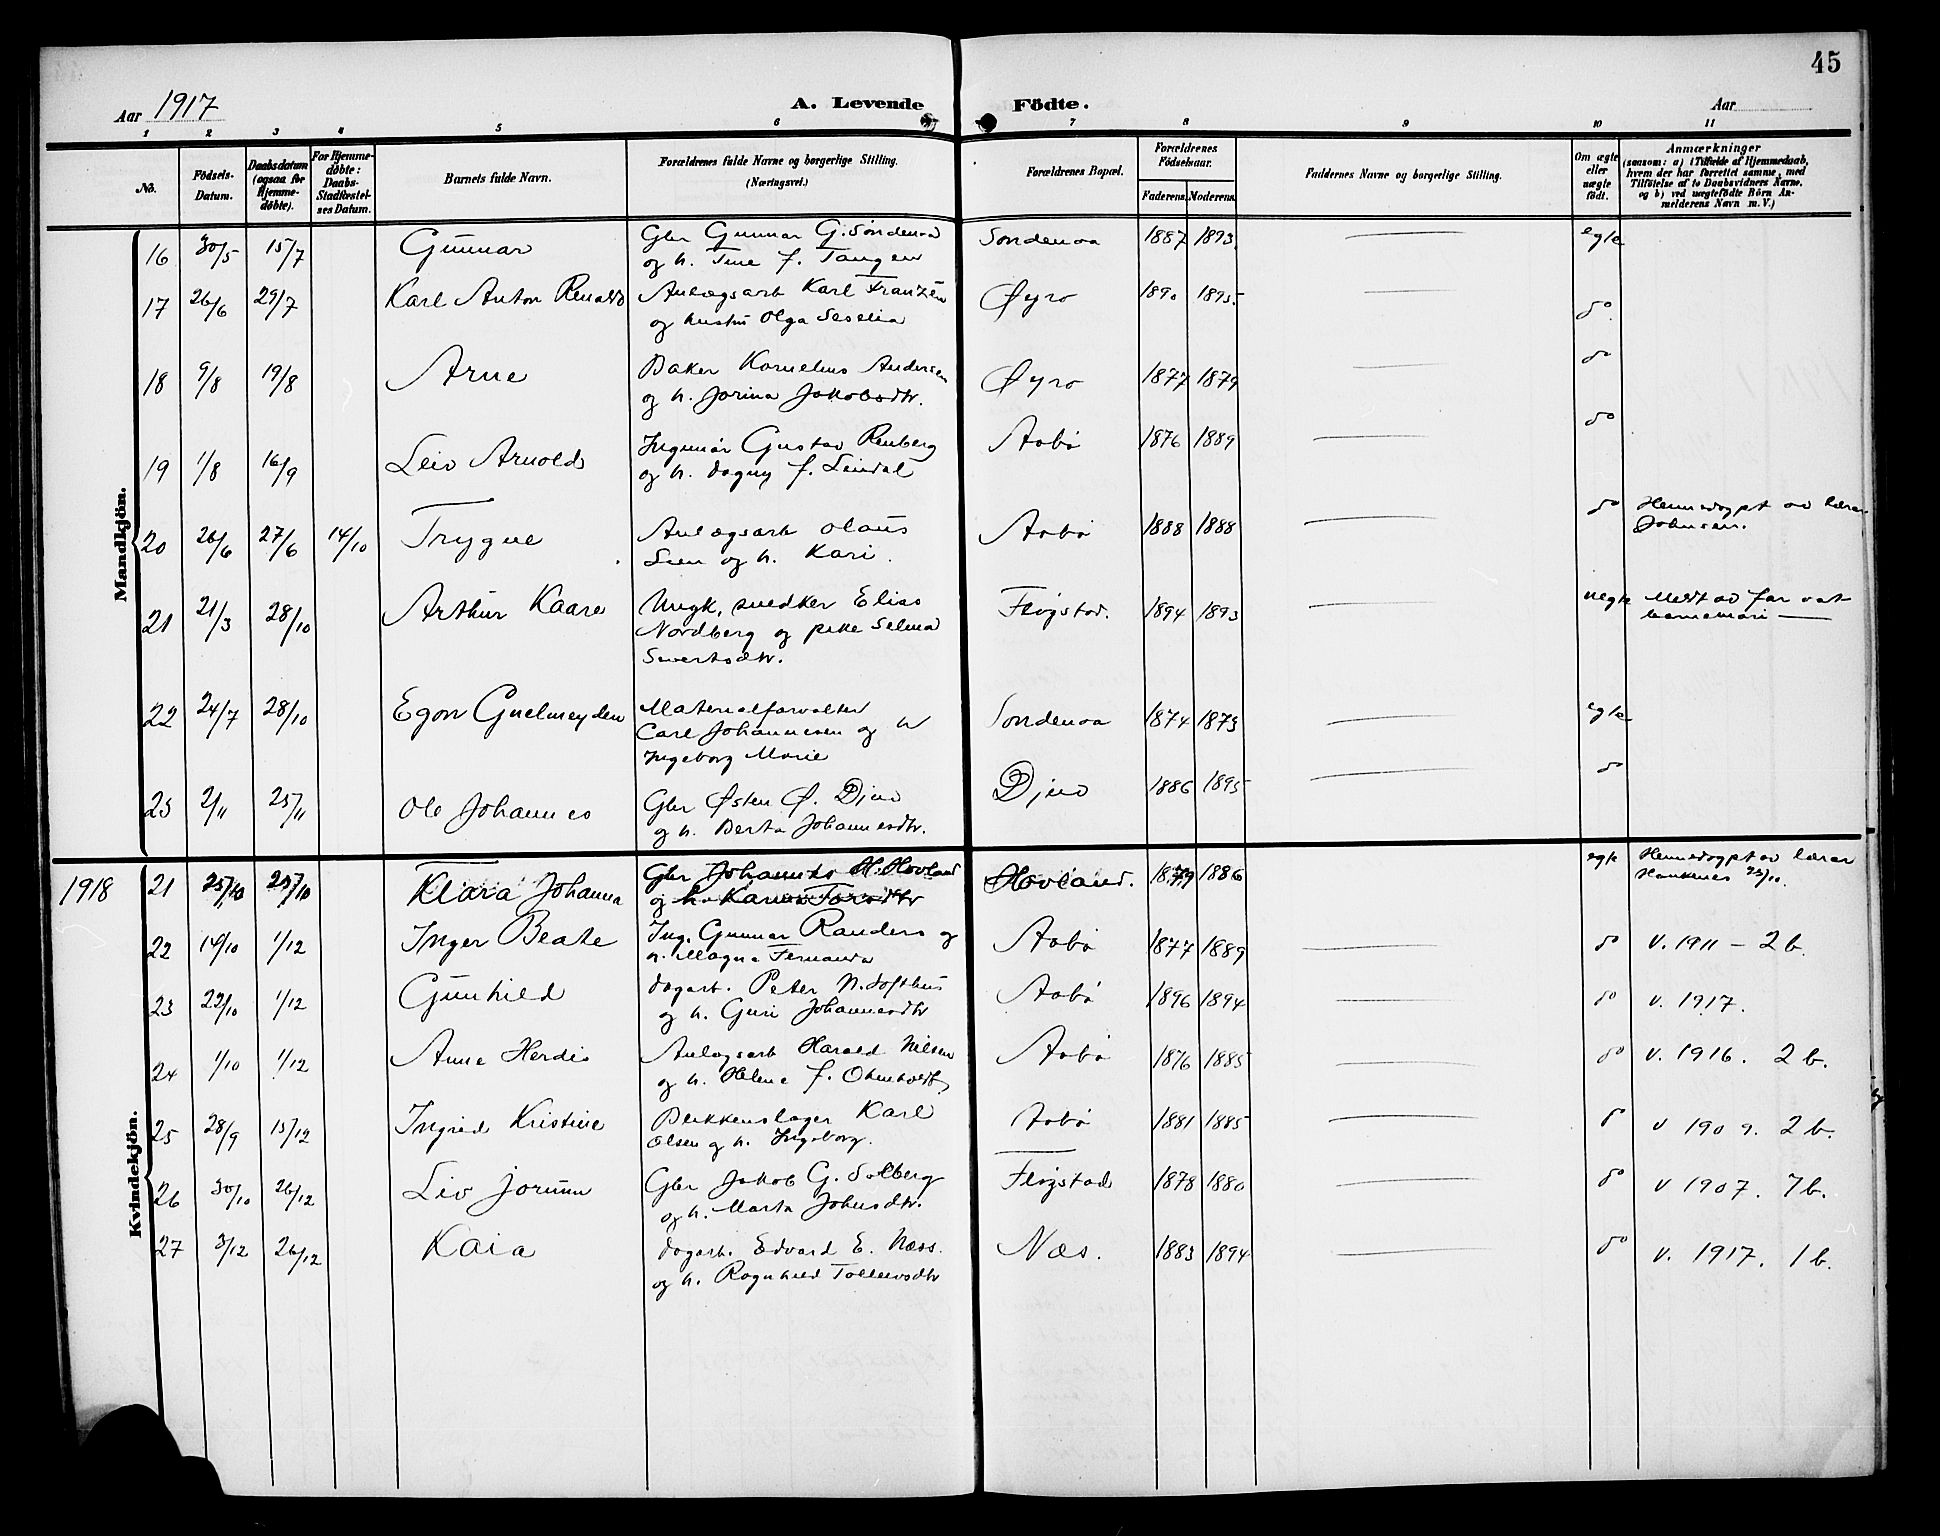 45
Aar 1917 A. Levende Födte. Aar
1 2 3 4 5 6 7 8 9 10 11
No.
Födsels-
Datum.
Daabsdatum
(ogsaa for
Hjemme-
döbte).
For Hjemme-
döbte:
Daabs-
Stadfæstel-
ses Datum.
Barnets fulde Navn.
Forældrenes fulde Navne og borgerlige Stilling.
(Næringsvei.)
Forældrenes Bopæl.
Forældrenes
Födselsaar.
Faderens. Moderens.
Faddernes Navne og borgerlige Stilling.
Om ægte
eller
uægte
födt.
Anmærkninger
(saasom: a) i Tilfælde af Hjemmedaab,
hvem der har forrettet samme, med
Tilföielse af to Daabsvidners Navne,
og b) ved uægtefödte Börn An-
melderens Navn m. V.)
Mandkjön.
16 30/5 15/7 Gunnar Gbr Gunnar G. Söndenaa Söndenaa 1887 1893 egte
og h. Tine f. Tangen
17 26/6 29/7 Karl Anton Renaldo Anlægsarb Karl Franzén Øyro 1890 1895 do
og hustru Olga Seselia
18 9/8 19/8 Arne Baker Kornelius Andersen Øyro 1877 1879 do
og h. Jorina Jakobsdtr.
19 1/8 16/9 Leiv Arnold Ingeniør Gustav Renberg Aabö 1876 1889 do
og h. Dagny f. Leirdal
20 26/6 27/6 14/10 Trygve Anlægsarb Olaus Aabö 1888 1888 do Hjemmedøypt av lærar
Lien og h. Kari. Johnsen.
21 21/3 28/10 Arthur Kaare Ungk. snedker Elias Fløgstad. 1894 1893 uegte Meldt av far
Nordberg og pike Selma
Sivertsdtr.
22 24/7 28/10 Egon Materialforvalter Söndenaa 1874 1873 egte
Carl Johannesen og h
Ingeborg Marie
23 2/11 25/11 Ole Johannes Gbr Østen Ø. Djuv Djuv 1886 1895 do
og h. Berta Johannesdtr.
Kvindekjön.
1918 21 25/10 25/10 Klara Johanna Gbr Johannes H. Hovland Hovland. 1879 1886 egte Hjemmedøypt av lærar
og h. Karen Torsdtr
22 14/10 1/12 Inger Beate Ing. Gunnar Randers og Aabö 1877 1889 do v. 1911 – 2 b.
h. Magna Fernanda
23 22/10 1/12 Gunhild Dagarb. Peter N. Lofthus Aabö 1896 1894 do v. 1917.
og h. Guri Johannesdtr
24 1/10 1/12 Anna Herdis Anlægsarb Harald Nilsen Aabö 1876 1885 do v. 1916. 2 b.
og h. Helene f.
25 28/9 15/12 Ingrid Kristine Blikkenslager Karl Aabö 1881 1885 do v 1909. 2 b.
Olsen og h. Ingeborg.
26 30/10 26/12 Liv Jorunn Gbr Jakob G. Solberg Fløgstad 1878 1880 do v 1907. 7 b.
og h. Marta Johnsdtr.
27 3/12 26/12 Kaia Dagarb. Edvard E. Næss. Næs. 1883 1894 do v. 1917. 1 b.
og h. Ragnhild Tollevsdtr